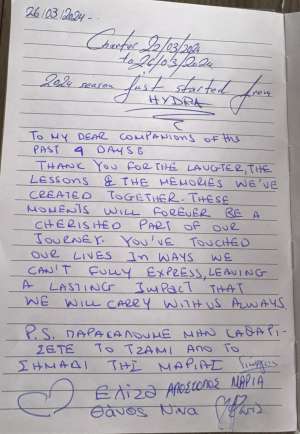 26/03/2024 -
Charter 22/03/2024
to 26/03/2024
2024 season just started from
HYDRA
TO MY DEAR COMPANIONS OF THIS
PAST 4 DAYS
THANK YOU FOR THE LAUGTER, THE
LESSONS & THE MEMORIES WE'VE
CREATED TOGETHER. THESE
MOMENTS WILL FOREVER BE A
CHERISHED PART OF OUR
JOURNEY. YOU'VE TOUCHED
OUR LIVES IN WAYS WE
CAN'T FULLY EXPRESS, LEAVING
A LASTING IMPACT THAT
WE WILL CARRY WITH US ALWAYS.
P.S. ΠΑΡΑΚΑΛΟΥΜΕ ΜΗΝ ΚΑΘΑΡΙ-
ΣΕΤΕ ΤΟ ΤΖΑΜΙ ΑΠΟ ΤΟ
ΣΗΜΑΔΙ ΤΗΣ ΜΑΡΙΑΣ
Ελίζα ΑΠΟΣΤΟΛΟΣ ΜΑΡΙΑ
Θάνος Νίνα